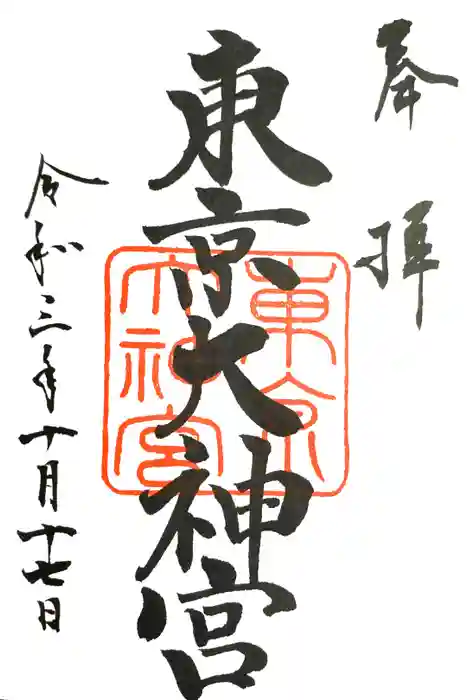 奉拝
東京大神宮
東京大神宮
令和三年十月十七日